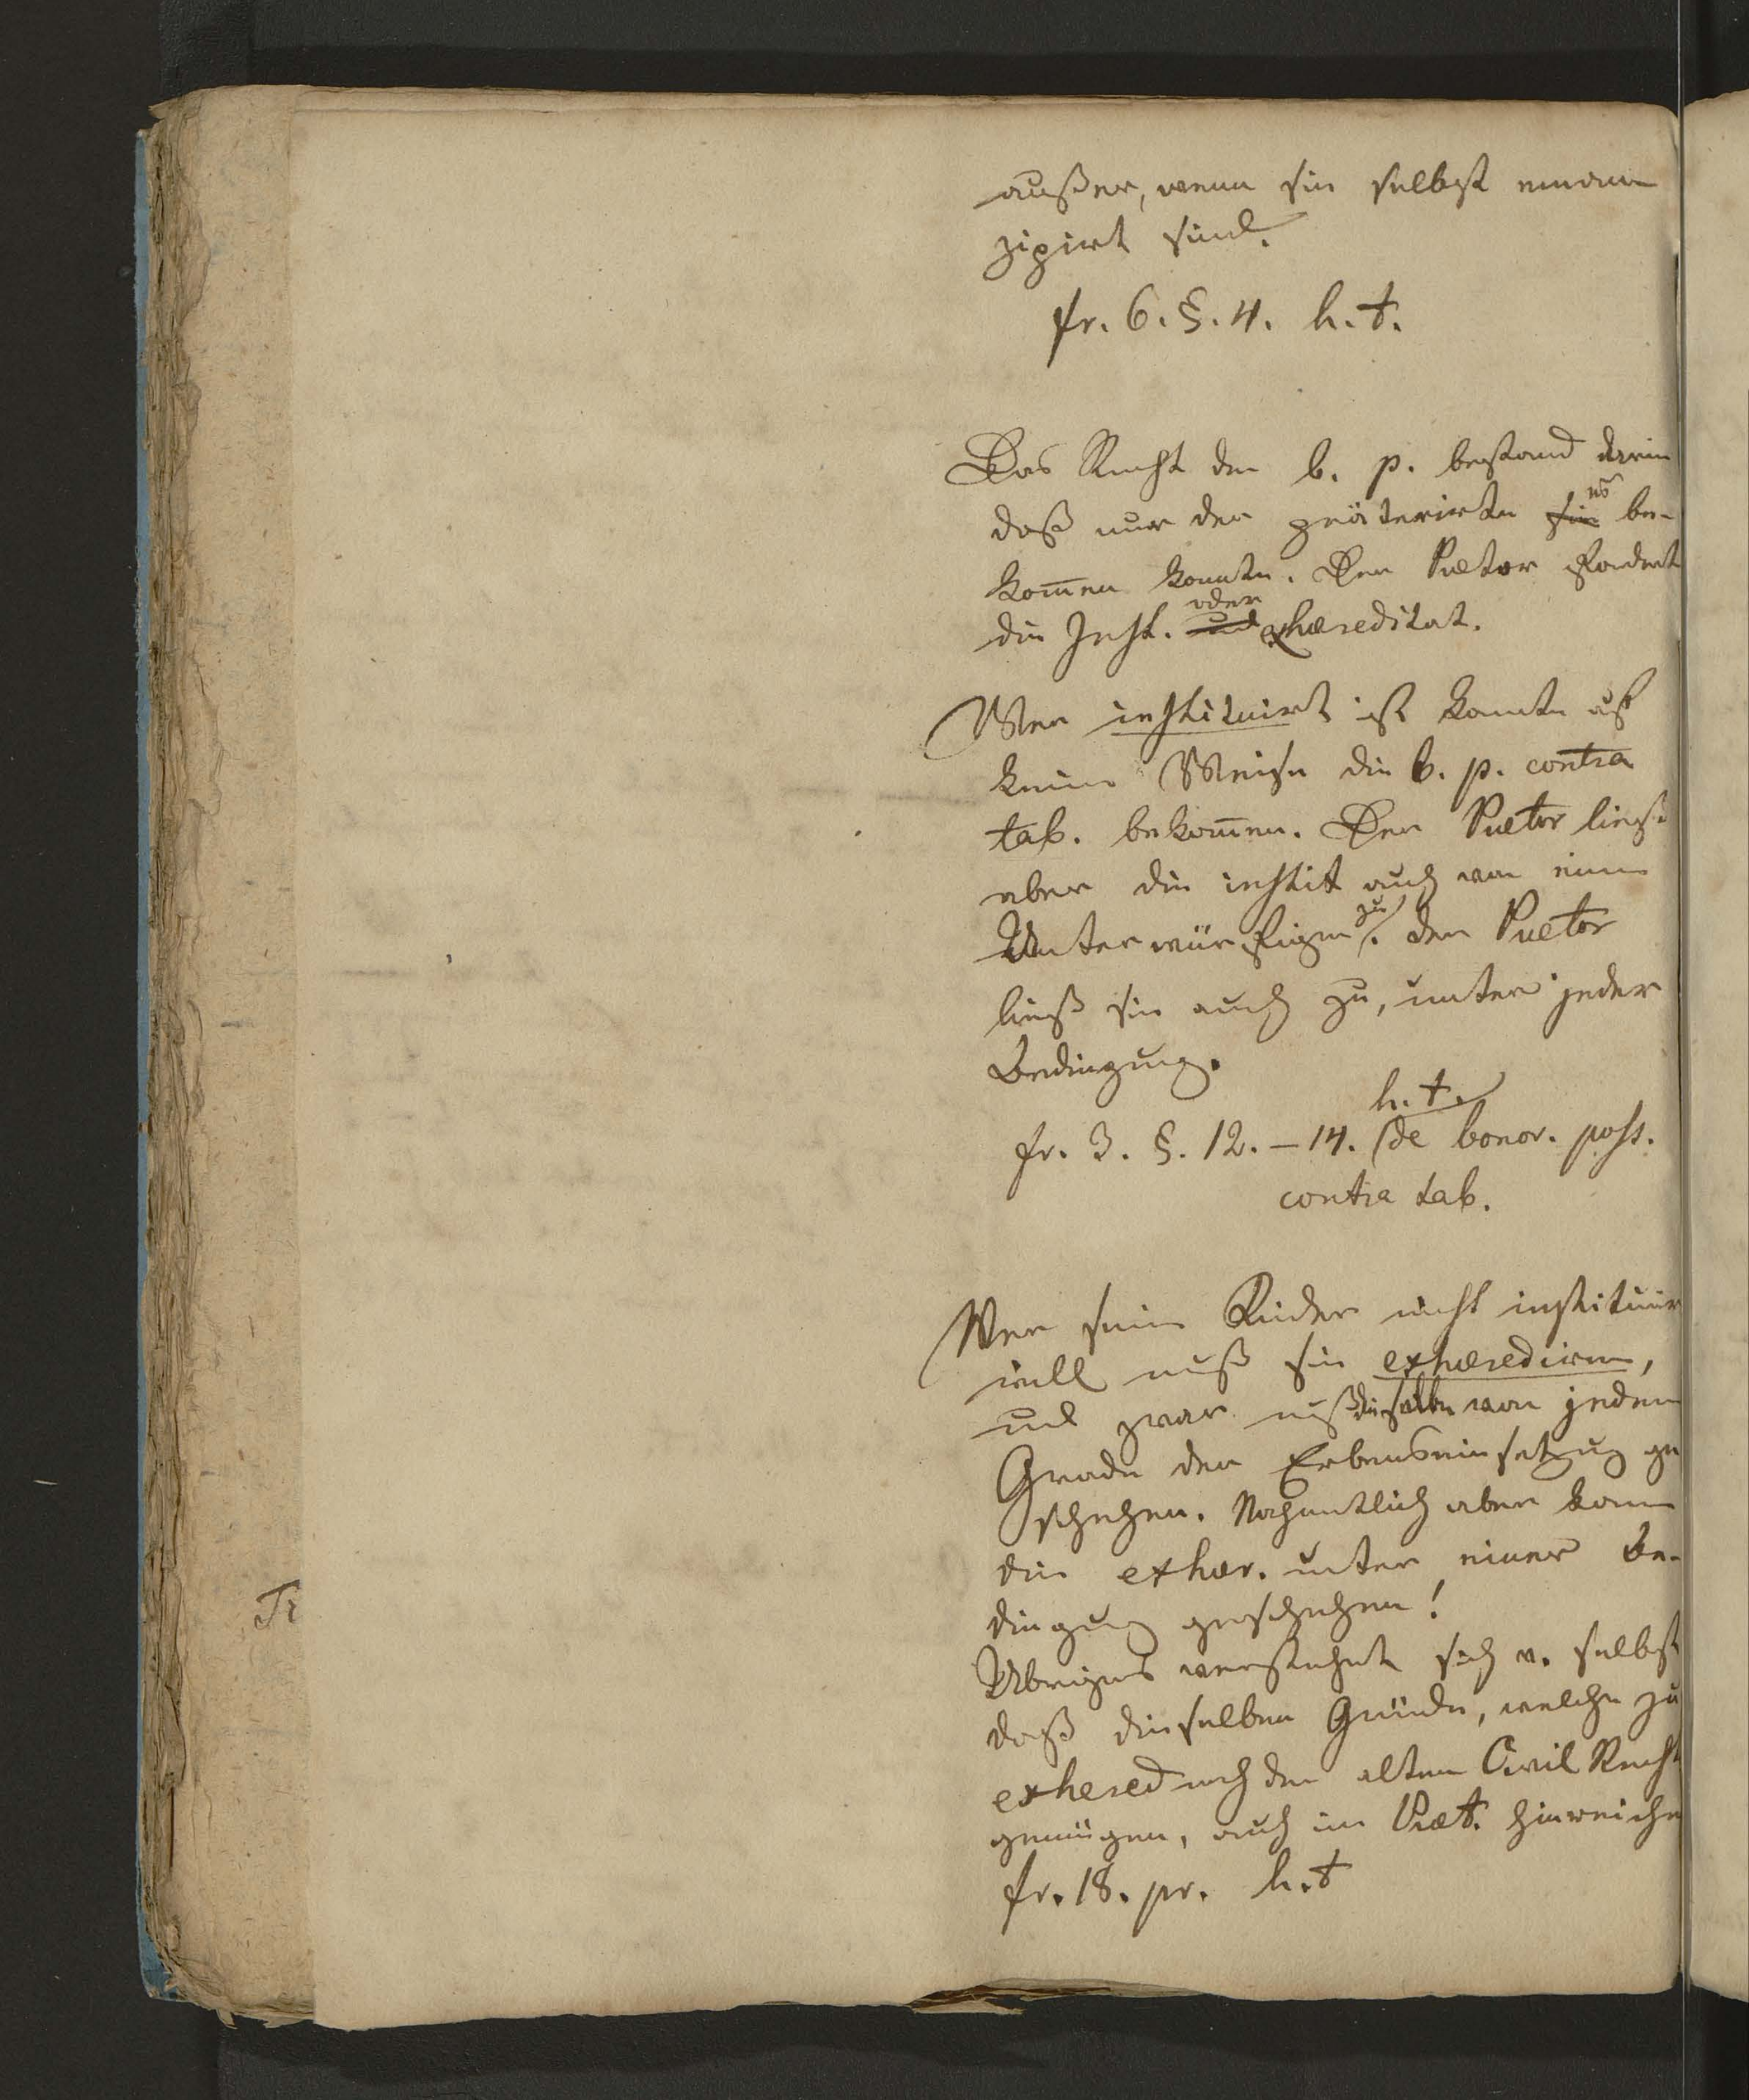 außer, wenn sie selbst eman
zipirt sind.
fr. 6. §. 4. h. t.
Das Recht der b. p. bestand darin
daß nur der präterirte sie es be-
kom̅en konnte. Der Prætor fordert
die Inst. und oder exhæreditat.
Wer instituirt ist konnte auf
keine Weise die b. p. contra
tab. bekom̅en. Der Prætor ließe
aber die instit auch von einem
Unterwürfigen zu. der Prætor
ließ sie auch zu, unter jeder
Bedingung.
h. t.
fr. 3. §. 12. – 14. (de bonor. poss.
contra tab.
Wer seine Kinder nicht instituir
will muß sie exhærediren,
und zwar muß dieselbe von jedem
Grade der Erbenseinsetzung ge
schehen. Nahmentlich aber kann
die exhær. unter einer Be-
dingung geschehen!
Übrigens verstehet sich v. selbst
daß dieselben Gründe, welche zu
exhered nach dem alten Civil Recht
genügen, auch im Præt. hinreiche
fr. 18. pr. h. t
Tr